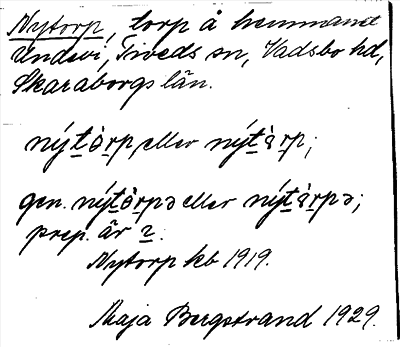 Nytorp, torp å hemmanet
Undevi, Tiveds sn, Vadsbo hd,
Skaraborgs län.
nýtò̱rp eller nýtà̱rp;
gen. nýtò̱rpə eller nýtà̱rpə;
prep. är
Nytorp kb 1919.
Maja Bergstrand 1929.